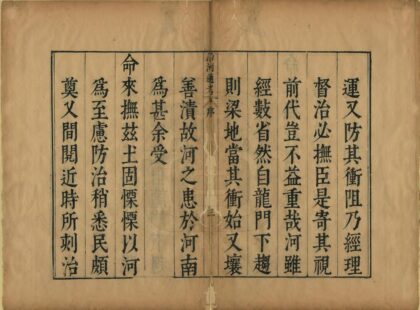 運又防其衝阻乃經理
督治必撫臣是寄其視
前代豈不益重哉河雖
經數省然自龍門下趨
則梁地當其衝始又壤
治河通考 序
三
善潰故河之患於河南
爲甚余受
命來撫茲土固慄慄以河
爲至慮防治稍悉民頗
奠又間閱近時所刻治